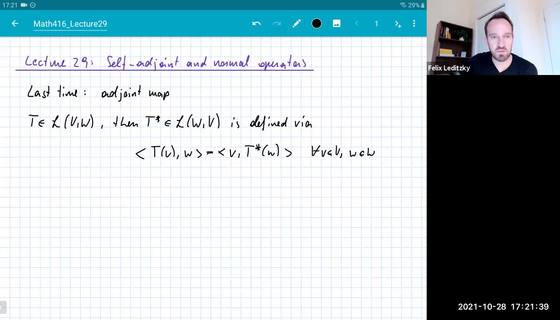 17:21
29%
Math416_Lecture29
1
Lecture 29: Self-adjoint and normal operators
Last time: adjoint map
T∈ L(V,W), then T* ∈ L(W,V) is defined via
< T(v), w> = <v, T*(w) > ∀v∈V, w∈W
Felix Leditzky
2021-10-28 17:21:39